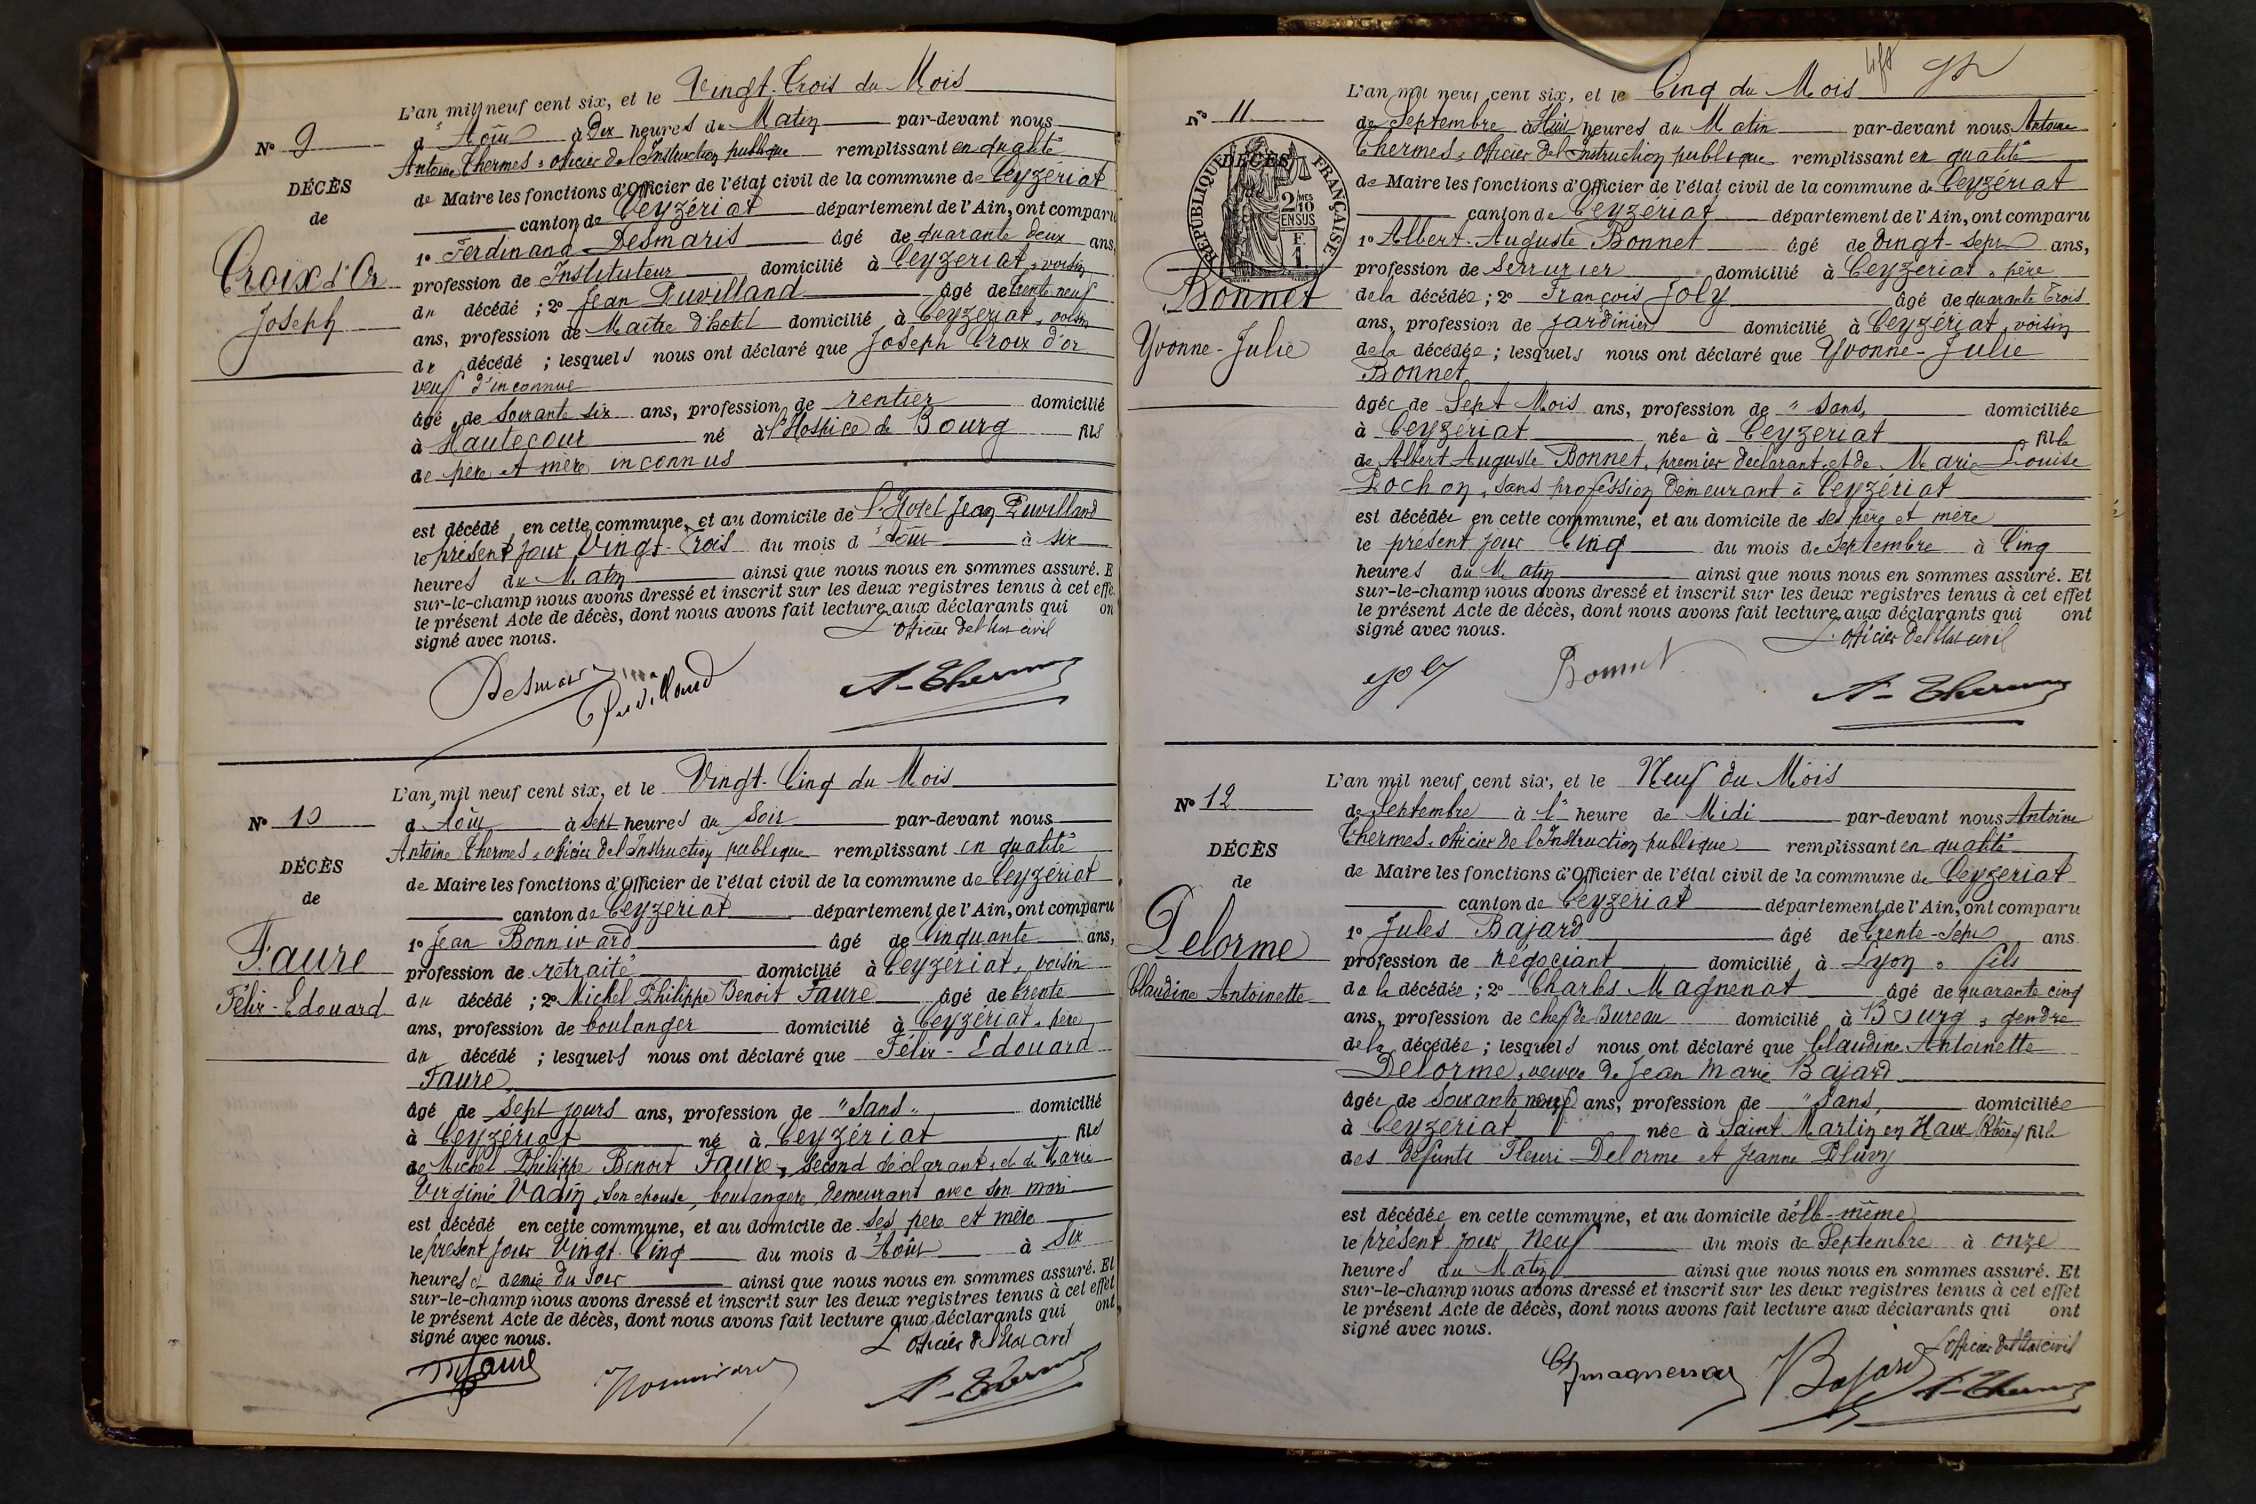 N° 9
DÉCÈS
de
Croix d'Or
Joseph
L'an mil neuf cent six, et le Vingt-Trois du Mois
d'Août à Dix heures du Matin par-devant nous
Antoine Thermes, officier de l'Instruction publique remplissant en qualité
de Maire les fonctions d'Officier de l'état civil de la commune de Ceyzériat
canton de Ceyzériat département de l'Ain, ont comparu
1° Ferdinand Desmaris âgé de quarante deux ans,
profession de Instituteur domicilié à Ceyzériat, voisin
du décédé ; 2° Jean Puvilland âgé de trente neuf
ans, profession de Maître d'hotel domicilié à Ceyzériat, voisin
du décédé ; lesquels nous ont déclaré que Joseph Croix d'or
veuf d'inconnue
âgé de Soixante six ans, profession de rentier domicilié
à Hautecour né à l'Hospice de Bourg fils
de père et mère inconnus
est décédé en cette commune, et au domicile de l'Hotel Jean Puvilland
le présent jour Vingt-Trois du mois d'Août à six
heures du Matin ainsi que nous nous en sommes assuré. E
sur-le-champ nous avons dressé et inscrit sur les deux registres tenus à cet effe
le présent Acte de décès, dont nous avons fait lecture aux déclarants qui on
signé avec nous.
L'officier de l'état civil
Desmaris
Puvilland
A. Thermes
N° 10
DÉCÈS
de
Faure
Félix-Edouard
L'an mil neuf cent six, et le Vingt-Cinq du Mois
d'Août à sept heures du Soir par-devant nous
Antoine Thermes, officier de l'Instruction publique remplissant en qualité
de Maire les fonctions d'Officier de l'état civil de la commune de Ceyzériat
canton de Ceyzériat département de l'Ain, ont comparu
1° Jean Bonnivard âgé de Cinquante ans,
profession de retraité domicilié à Ceyzériat, voisin
du décédé ; 2° Michel Philippe Benoit Faure âgé de trente
ans, profession de boulanger domicilié à Ceyzériat, père
du décédé ; lesquels nous ont déclaré que Félix-Edouard
Faure
âgé de Sept jours ans, profession de "Sans" domicilié
à Ceyzériat né à Ceyzériat fils
de Michel Philippe Benoit Faure, second déclarant, et de Marie
Virginie Vadin, son épouse, boulangère, demeurant avec son mari
est décédé en cette commune, et au domicile de ses père et mère
le présent jour Vingt-Cinq du mois d'Août à Six
heures et demie du soir ainsi que nous nous en sommes assuré. Et
sur-le-champ nous avons dressé et inscrit sur les deux registres tenus à cet effet
le présent Acte de décès, dont nous avons fait lecture aux déclarants qui ont
signé avec nous.
L'officier de l'état civil
Faure
Bonnivard
A. Thermes
N° 11
RÉPUBLIQUE FRANÇAISE
DÉCÈS
2 MES
10
EN SUS
F.
1.
Bonnet
Yvonne-Julie
L'an mil neuf cent six, et le Cinq du Mois
de Septembre à Huit heures du Matin par-devant nous Antoine
Thermes, officier de l'Instruction publique remplissant en qualité
de Maire les fonctions d'Officier de l'état civil de la commune de Ceyzériat
canton de Ceyzériat département de l'Ain, ont comparu
1° Albert-Auguste Bonnet âgé de Vingt-Sept ans,
profession de Serrurier domicilié à Ceyzériat, père
de la décédée ; 2° François Joly âgé de quarante trois
ans, profession de jardinier domicilié à Ceyzériat, voisin
de la décédée ; lesquels nous ont déclaré que Yvonne-Julie
Bonnet
âgée de Sept Mois ans, profession de "Sans" domiciliée
à Ceyzériat née à Ceyzériat fille
de Albert Auguste Bonnet, premier déclarant, et de Marie Louise
Pochon, sans profession demeurant à Ceyzériat
est décédée en cette commune, et au domicile de ses père et mère
le présent jour Cinq du mois de Septembre à Cinq
heures du Matin ainsi que nous nous en sommes assuré. Et
sur-le-champ nous avons dressé et inscrit sur les deux registres tenus à cet effet
le présent Acte de décès, dont nous avons fait lecture aux déclarants qui ont
signé avec nous.
L'officier de l'état civil
Joly
Bonnet
A. Thermes
N° 12
DÉCÈS
de
Delorme
Claudine Antoinette
L'an mil neuf cent six, et le Neuf du Mois
de Septembre à l' heure de Midi par-devant nous Antoine
Thermes, officier de l'Instruction publique remplissant en qualité
de Maire les fonctions d'Officier de l'état civil de la commune de Ceyzériat
canton de Ceyzériat département de l'Ain, ont comparu
1° Jules Bajard âgé de trente-sept ans
profession de négociant domicilié à Lyon, fils
de la décédée ; 2° Charles Magnenat âgé de quarante cinq
ans, profession de chef de Bureau domicilié à Bourg, gendre
de la décédée ; lesquels nous ont déclaré que Claudine Antoinette
Delorme, veuve de Jean Marie Bajard
âgée de Soixante neuf ans, profession de "Sans" domiciliée
à Ceyzériat née à Saint Martin en Haut (Rhône) fille
des défunts Fleuri Delorme et Jeanne Pluvy
est décédée en cette commune, et au domicile d'elle-même
le présent jour Neuf du mois de Septembre à onze
heures du Matin ainsi que nous nous en sommes assuré. Et
sur-le-champ nous avons dressé et inscrit sur les deux registres tenus à cet effet
le présent Acte de décès, dont nous avons fait lecture aux déclarants qui ont
signé avec nous.
L'officier de l'état civil
Ch magnenat
J Bajard
A. Thermes